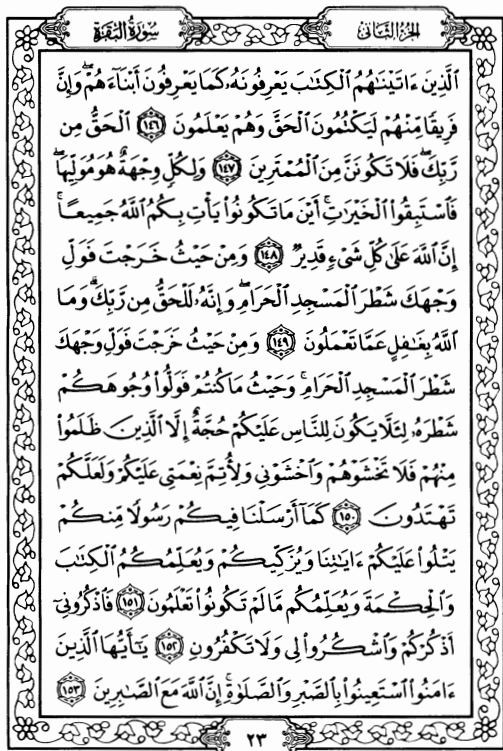 سُورَةُ البَقَرَةِ الجُزءُ الثَّانِي
ٱلَّذِينَ ءَاتَيْنَٰهُمُ ٱلْكِتَٰبَ يَعْرِفُونَهُۥ كَمَا يَعْرِفُونَ أَبْنَآءَهُمْ ۖ وَإِنَّ
فَرِيقًا مِّنْهُمْ لَيَكْتُمُونَ ٱلْحَقَّ وَهُمْ يَعْلَمُونَ ١٤٦ ٱلْحَقُّ مِن
رَّبِّكَ ۖ فَلَا تَكُونَنَّ مِنَ ٱلْمُمْتَرِينَ ١٤٧ وَلِكُلٍّ وِجْهَةٌ هُوَ مُوَلِّيهَا ۖ
فَٱسْتَبِقُوا۟ ٱلْخَيْرَٰتِ ۚ أَيْنَ مَا تَكُونُوا۟ يَأْتِ بِكُمُ ٱللَّهُ جَمِيعًا ۚ
إِنَّ ٱللَّهَ عَلَىٰ كُلِّ شَىْءٍ قَدِيرٌ ١٤٨ وَمِنْ حَيْثُ خَرَجْتَ فَوَلِّ
وَجْهَكَ شَطْرَ ٱلْمَسْجِدِ ٱلْحَرَامِ ۖ وَإِنَّهُۥ لَلْحَقُّ مِن رَّبِّكَ ۗ وَمَا
ٱللَّهُ بِغَٰفِلٍ عَمَّا تَعْمَلُونَ ١٤٩ وَمِنْ حَيْثُ خَرَجْتَ فَوَلِّ وَجْهَكَ
شَطْرَ ٱلْمَسْجِدِ ٱلْحَرَامِ ۚ وَحَيْثُ مَا كُنتُمْ فَوَلُّوا۟ وُجُوهَكُمْ
شَطْرَهُۥ لِئَلَّا يَكُونَ لِلنَّاسِ عَلَيْكُمْ حُجَّةٌ إِلَّا ٱلَّذِينَ ظَلَمُوا۟
مِنْهُمْ فَلَا تَخْشَوْهُمْ وَٱخْشَوْنِى وَلِأُتِمَّ نِعْمَتِى عَلَيْكُمْ وَلَعَلَّكُمْ
تَهْتَدُونَ ١٥٠ كَمَآ أَرْسَلْنَا فِيكُمْ رَسُولًا مِّنكُمْ
يَتْلُوا۟ عَلَيْكُمْ ءَايَٰتِنَا وَيُزَكِّيكُمْ وَيُعَلِّمُكُمُ ٱلْكِتَٰبَ
وَٱلْحِكْمَةَ وَيُعَلِّمُكُم مَّا لَمْ تَكُونُوا۟ تَعْلَمُونَ ١٥١ فَٱذْكُرُونِىٓ
أَذْكُرْكُمْ وَٱشْكُرُوا۟ لِى وَلَا تَكْفُرُونِ ١٥٢ يَٰٓأَيُّهَا ٱلَّذِينَ
ءَامَنُوا۟ ٱسْتَعِينُوا۟ بِٱلصَّبْرِ وَٱلصَّلَوٰةِ ۚ إِنَّ ٱللَّهَ مَعَ ٱلصَّٰبِرِينَ ١٥٣
٢٣